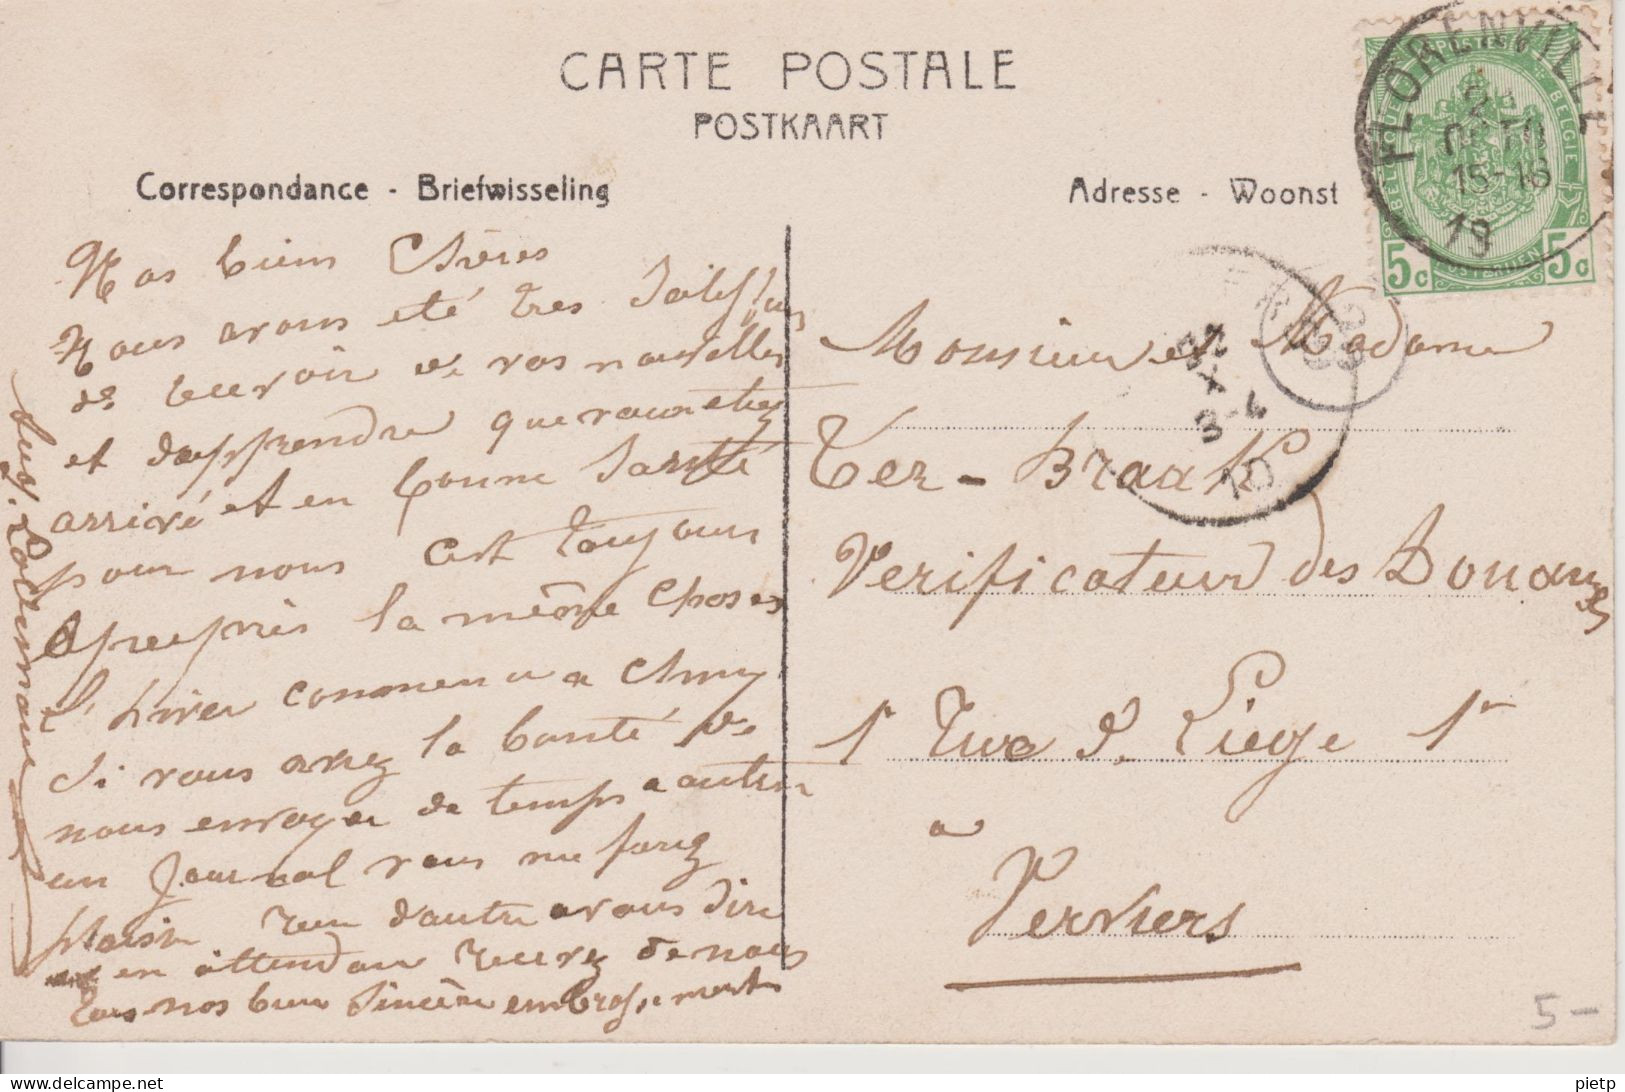 CARTE POSTALE
POSTKAART
Correspondance - Briefwisseling
Adresse - Woonst
FLORENVILLE
21
OCTO
15-16
19
POSTES
BELGIQUE
BELGIE
POSTERIJEN
5c 5c
3-4
10
Nos bien Chères
Nous avons été tres
de recevoir de vos nouvelles
et dapprendre que vous etiez
arrivé et en bonne Santé
pour nous cest toujours
apeuprès la même choses
l'hiver commence a Chiny
Si vous avez la bonté de
nous envoyer de temps a autre
un Journal vous me ferez
plaisir rien d'autre a vous dire
en attendan recevez de nous
tous nos bien Sincère embrassements
Monsieur et Madame
Ter-Braak
Verificateur des Douanes
1r Rue d. Liege 1r
a
Verviers
5-
Delcampe.net
pietp